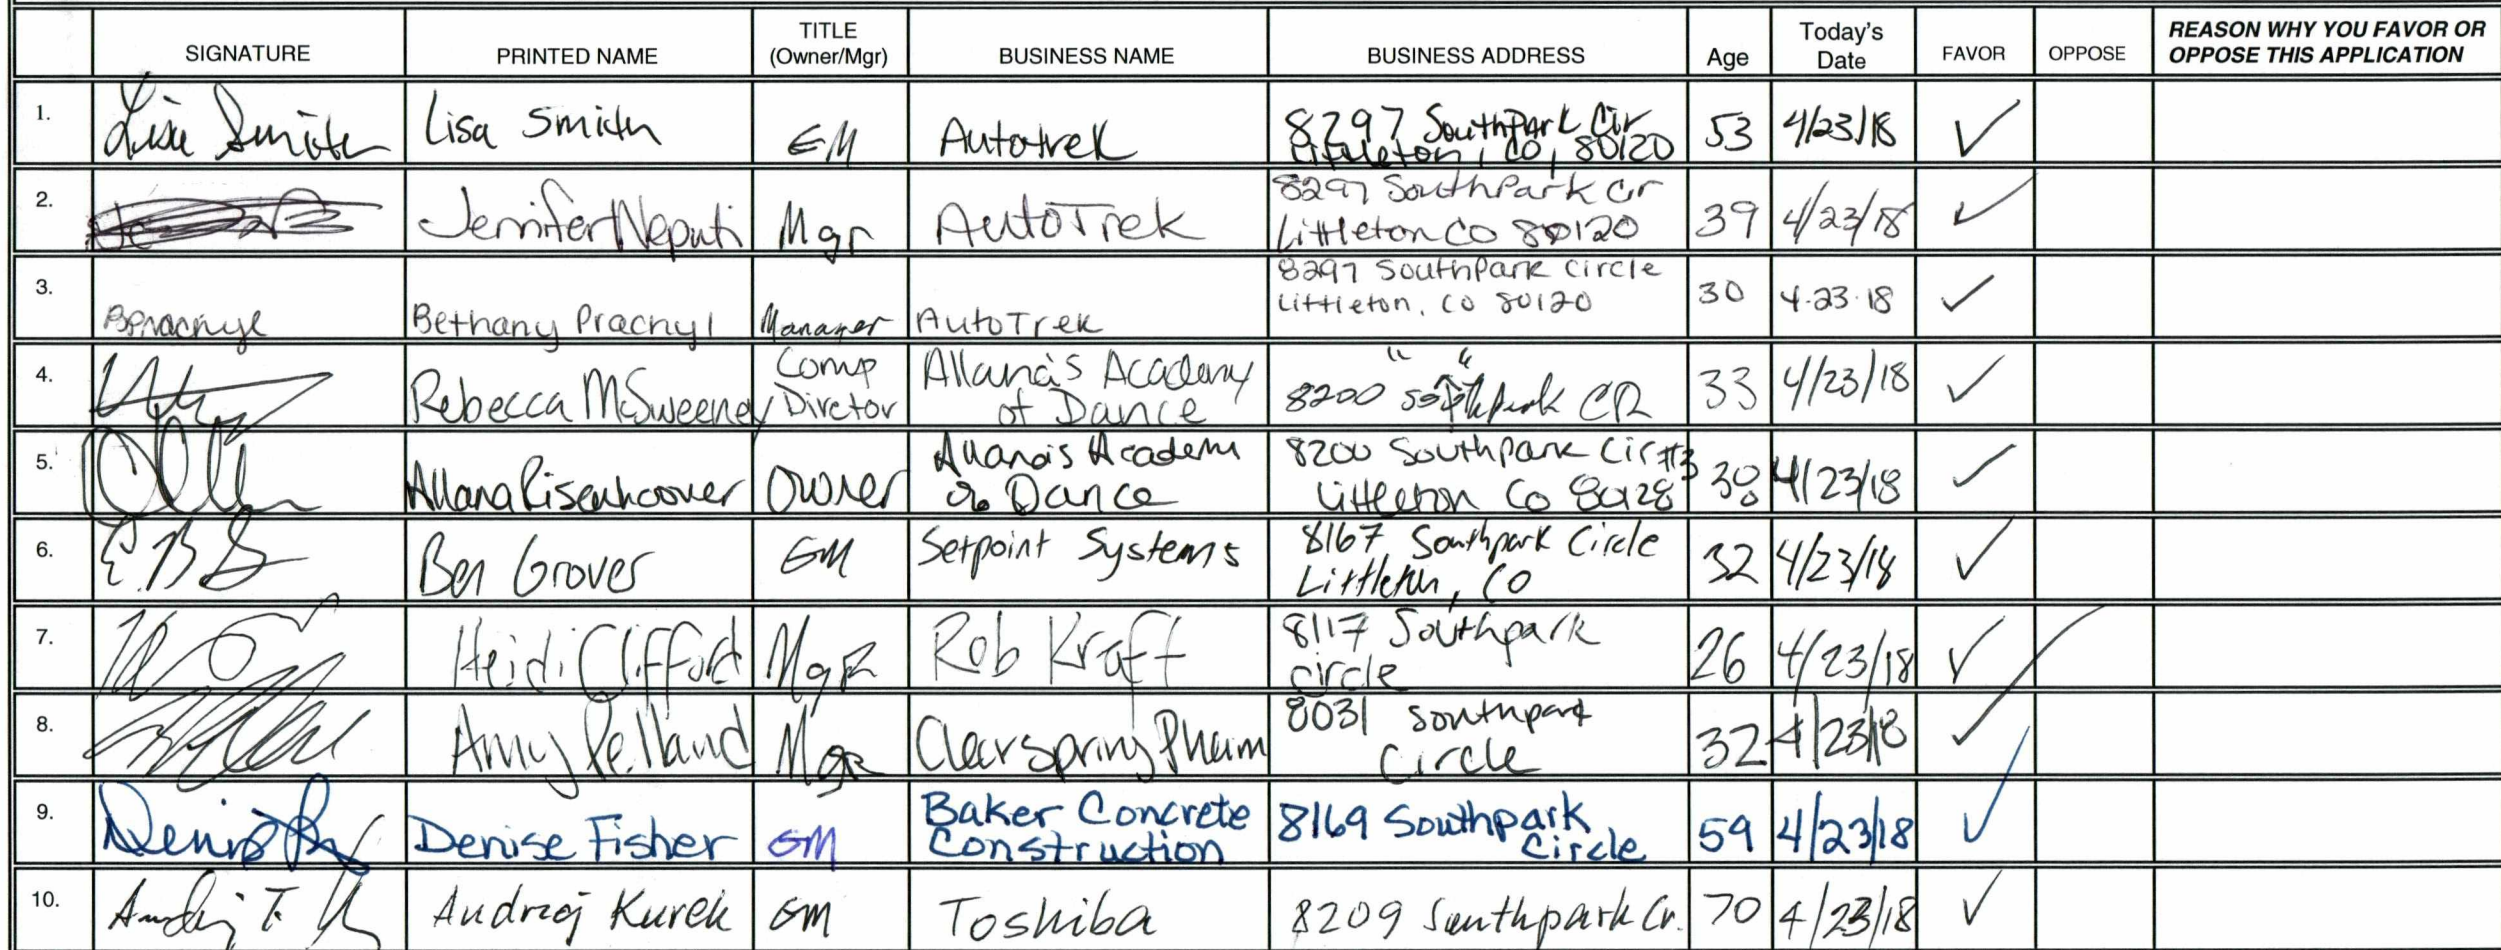 SIGNATURE PRINTED NAME TITLE (Owner/Mgr) BUSINESS NAME BUSINESS ADDRESS Age Today's Date FAVOR OPPOSE REASON WHY YOU FAVOR OR OPPOSE THIS APPLICATION
1. Lisa Smith Lisa Smith GM Autotrek 8297 SouthPark Cir 53 4/23/18 ✓
Littleton, CO, 80120
2. Jennifer Neputi Mgr AutoTrek 8297 SouthPark Cir 39 4/23/18 ✓
Littleton CO 80120
3. Bprachyl Bethany Prachyl Manager AutoTrek 8297 SouthPark circle 30 4-23-18 ✓
Littleton, CO 80120
4. Rebecca McSweeney Comp Dirctor Allana's Academy of Dance 8200 Southpark CR 33 4/23/18 ✓
5. Allana Risenhoover Owner Allana's Academy of Dance 8200 Southpark Cir #3 38 4/23/18 ✓
Littleton Co 80128
6. Ben Grover GM Setpoint Systems 8167 Southpark Circle 32 4/23/18 ✓
Littleton, CO
7. Heidi Clifford MgR Rob Kraft 8117 Southpark circle 26 4/23/18 ✓
8. Amy Pelland MgR Clearspring Pharm 8031 Southpark Circle 32 4/23/18 ✓
9. Denise Fisher GM Baker Concrete Construction 8169 Southpark Circle 59 4/23/18 ✓
10. Andrzej Kurek GM Toshiba 8209 Southpark Cr. 70 4/23/18 ✓